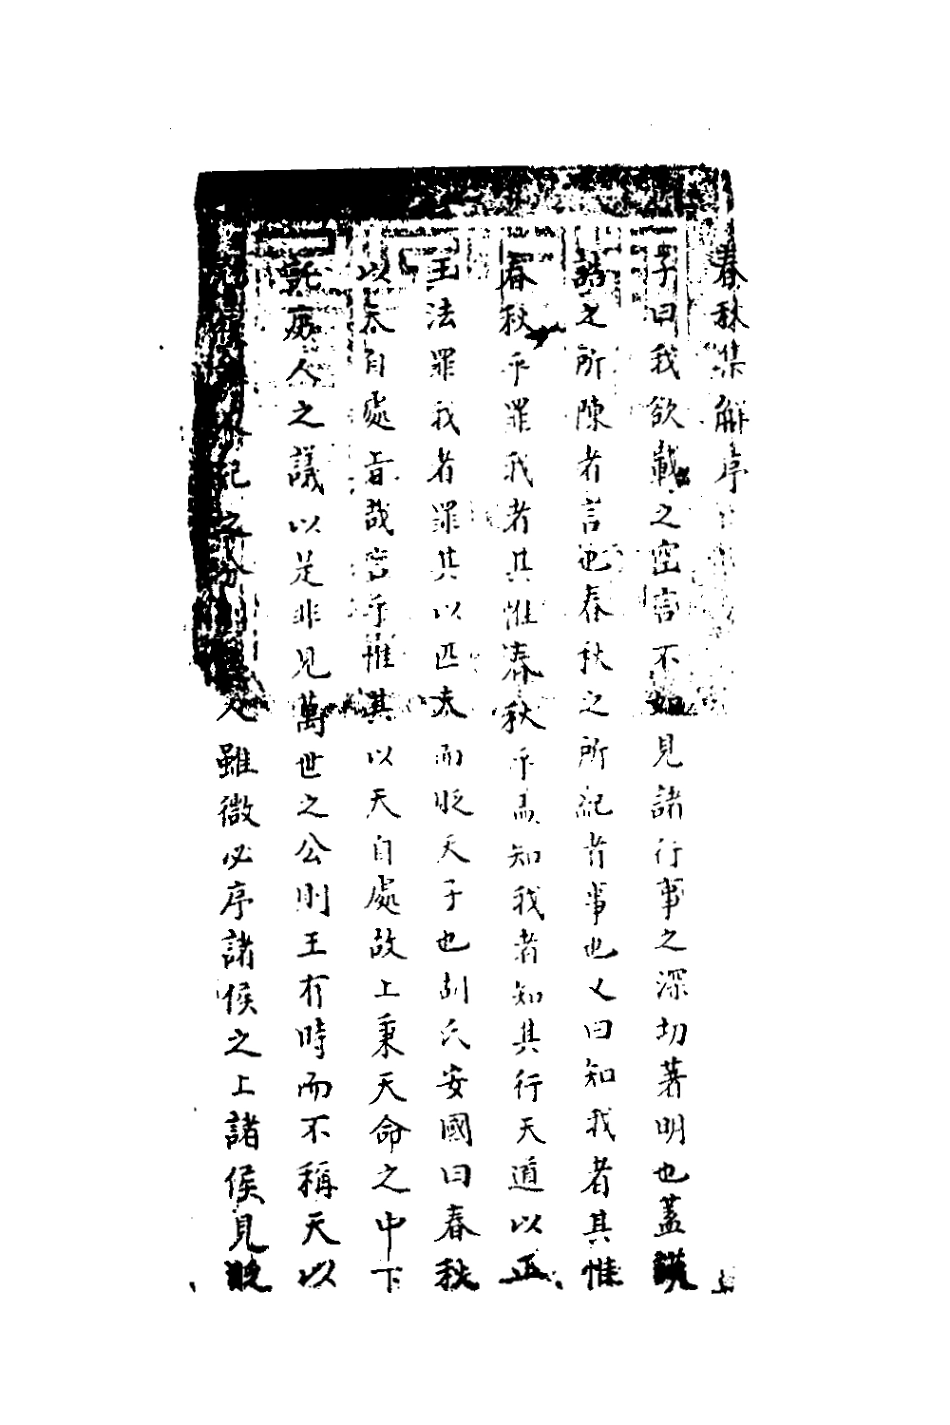 春秋集解序
子曰我欲載之空言不如見諸行事之深切著明也蓋謨
誥之所陳者言也春秋之所紀者事也又曰知我者其惟
春秋乎罪我者其惟春秋乎孟知我者知其行天道以正
王法罪我者罪其以匹夫而貶天子也胡氏安國曰春秋
以天自處旨哉言乎惟其以天自處故上秉天命之中下
託庶人之議以是非見萬世之公則王有時而不稱天以
紀之分則人雖微必序諸侯之上諸侯見貶